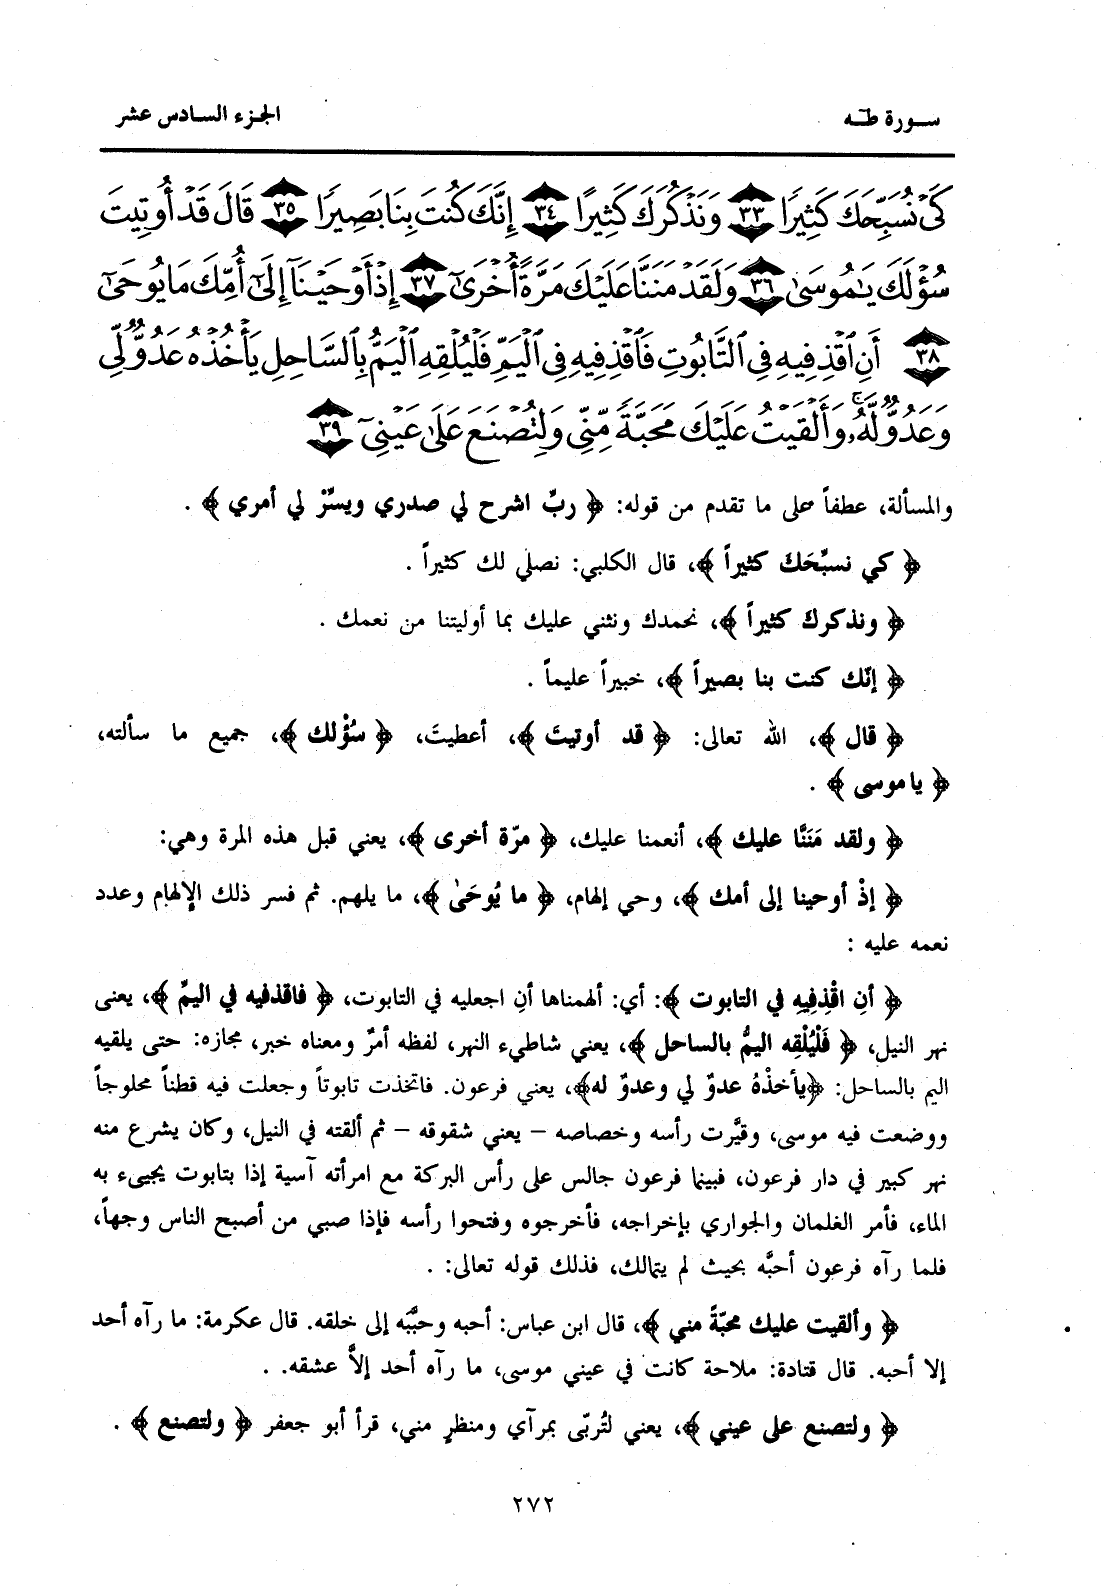 سورة طه
الجزء السادس عشر
كَىْ نُسَبِّحَكَ كَثِيرًا ٣٣ وَنَذْكُرَكَ كَثِيرًا ٣٤ إِنَّكَ كُنتَ بِنَا بَصِيرًا ٣٥ قَالَ قَدْ أُوتِيتَ
سُؤْلَكَ يَٰمُوسَىٰ ٣٦ وَلَقَدْ مَنَنَّا عَلَيْكَ مَرَّةً أُخْرَىٰٓ ٣٧ إِذْ أَوْحَيْنَآ إِلَىٰٓ أُمِّكَ مَا يُوحَىٰٓ
٣٨ أَنِ ٱقْذِفِيهِ فِى ٱلتَّابُوتِ فَٱقْذِفِيهِ فِى ٱلْيَمِّ فَلْيُلْقِهِ ٱلْيَمُّ بِٱلسَّاحِلِ يَأْخُذْهُ عَدُوٌّ لِّى
وَعَدُوٌّ لَّهُۥ ۚ وَأَلْقَيْتُ عَلَيْكَ مَحَبَّةً مِّنِّى وَلِتُصْنَعَ عَلَىٰ عَيْنِىٓ ٣٩
والمسألة، عطفاً على ما تقدم من قوله: ﴿ ربِّ اشرح لي صدري ويسِّرْ لي أمري ﴾ .
﴿ كي نسبِّحَكَ كثيراً ﴾، قال الكلبي: نصلي لك كثيراً .
﴿ ونذكركَ كثيراً ﴾، نحمدك ونثني عليك بما أوليتنا من نعمك .
﴿ إنّك كنت بنا بصيراً ﴾، خبيراً عليماً .
﴿ قال ﴾، الله تعالى: ﴿ قد أوتيتَ ﴾، أعطيتَ، ﴿ سُؤْلك ﴾، جميع ما سألته،
﴿ ياموسى ﴾ .
﴿ ولقد مَنَنَّا عليك ﴾، أنعمنا عليك، ﴿ مرّة أخرى ﴾، يعني قبل هذه المرة وهي:
﴿ إذْ أوحينا إلى أمك ﴾، وحي إلهام، ﴿ ما يُوحَىٰ ﴾، ما يلهم. ثم فسر ذلك الإلهام وعدد
نعمه عليه :
﴿ أنِ اقْذِفِيهِ في التابوت ﴾: أي: ألهمناها أنِ اجعليه في التابوت، ﴿ فاقذفيه في اليمِّ ﴾، يعني
نهر النيل، ﴿ فَلْيُلْقِه اليمُّ بالساحل ﴾، يعني شاطىء النهر، لفظه أمرٌ ومعناه خبر، مجازه: حتى يلقيه
اليم بالساحل: ﴿يأخذْهُ عدوٌ لي وعدوٌ له﴾، يعني فرعون. فاتخذت تابوتاً وجعلت فيه قطناً محلوجاً
ووضعت فيه موسى، وقيَّرت رأسه وخصاصه – يعني شقوقه – ثم ألقته في النيل، وكان يشرع منه
نهر كبير في دار فرعون، فبينما فرعون جالس على رأس البركة مع امرأته آسية إذا بتابوت يجيىء به
الماء، فأمر الغلمان والجواري بإخراجه، فأخرجوه وفتحوا رأسه فإذا صبي من أصبح الناس وجهاً،
فلما رآه فرعون أحبَّه بحيث لم يتمالك، فذلك قوله تعالى: .
﴿ وألقيت عليك محبّةً مني ﴾، قال ابن عباس: أحبه وحبَّبَه إلى خلقه. قال عكرمة: ما رآه أحد
إلا أحبه. قال قتادة: ملاحة كانت في عيني موسى، ما رآه أحد إلاَّ عشقه. .
﴿ ولتصنع على عيني ﴾، يعني لتُربّى بمرآي ومنظرٍ مني، قرأ أبو جعفر ﴿ ولتصنع ﴾ .
٢٧٢